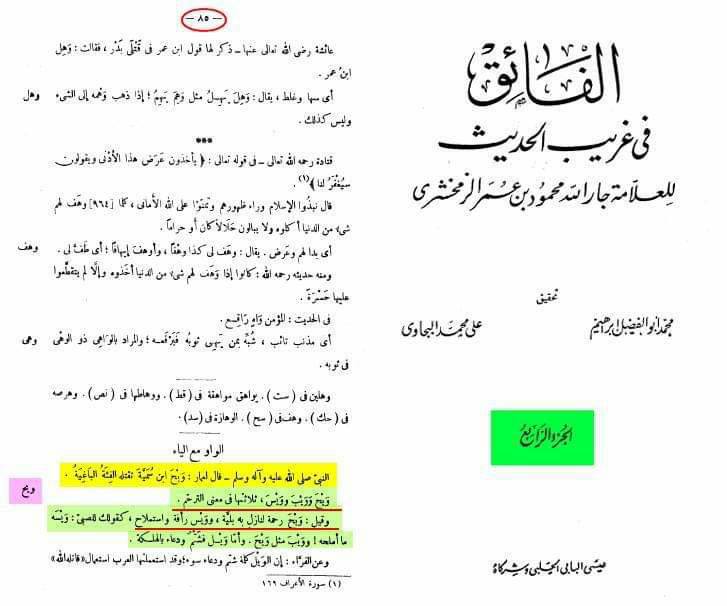 الفائق
في غريب الحديث
للعلامة جار الله محمود بن عمر الزمخشري
تحقيق
علي محمد البجاوي
محمد أبو الفضل إبراهيم
الجزء الرابع
عيسى البابي الحلبي وشركاه
— ٨٥ —
عائشة رضى الله تعالى عنها ــ ذكر لها قول ابن عمر فى قَتْلَى بَدْر ، فقالت : وَهِل
ابنُ عمر .
أى سها وغلط ، يقال : وَهِلَ يَهِيلُ مثل وَهِمَ يَهِمُ ؛ إذا ذهب وَهْمه إلى الشىء
وهل
وليس كذلك .
***
قتادة رحمه الله تعالى ــ فى قوله تعالى : ﴿ يأخذون عَرَضَ هذا الأدْنَى ويقولون
سيُغْفَرُ لنا ﴾(١).
قال نبذُوا الإسلام وراء ظهورهم وتمنَّوْا على الله الأمانى ، كلما [٩٦٤] وَهَف لهم
شىء من الدنيا أكلوه ولا يبالون حَلَالاً كان أو حراما .
أى بدا لهم وعَرض . يقال : وهَف لى كذا وَهْفًا ، وأوهف إيهافًا ؛ أى طَفَّ لى .
وهف
ومنه حديثه رحمه الله : كانوا إذا وَهَف لهم شىء من الدنيا أخَذُوه وإلَّا لم يتقطَّعوا
عليها حَسْرَةً .
فى الحديث : المؤمن وَاهٍ رَاقِع .
أى مذنب تائب ، شُبِّه بمن يَهِى ثوبُه فَيَرْقَعه ؛ والمراد بالوَاهِى ذو الوَهْى
وهى
فى ثوبه .
وهلين فى ( ست ) . يواهق مواهقة فى ( قط ) . ووهاطها فى ( نص ) . وهرصه
فى ( حك ) . وهف فى ( سح ) . الوهازة فى ( سد ) .
الواو مع الياء
النبىّ صلى الله عليه وآله وسلم ــ قال لعمار : وَيْحَ ابن سُمَيَّة تقتله الفِئَةُ الباغِيَةُ .
ويح
وَيْحَ وَوَيْبَ وَوَيْسَ ، ثلاثتها فى معنى الترحّم .
وقيل : وَيْحَ رحمة لنازلٍ به بليَّة ، ووَيْس رأفة واستملاح ، كقولك للصبىّ : وَيْسَه
ما أملحه ! ووَيْبَ مثل وَيْحَ . وأمّا وَيْل فشَتْم ودعاء بالهلكة .
وعن الفرّاء : إن الوَيْلَ كلمة شتم ودعاء سوء ؛ وقد استعملتها العرب استعمال «قاتله الله»
(١) سورة الأعراف ١٦٩